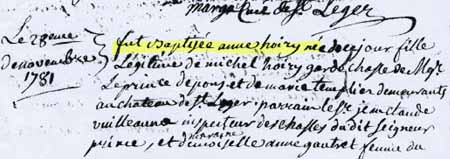 marg. Curé de St. Leger
Le 28eme
de novembre
1781
fut Baptisée anne hoiry née de ce jour fille
Légitime de michel hoiry garde chasse de Mgr
Le prince de pons et de marie templier demeurants
au chateau de St Leger parrain le Sr jean claude
vuilleaume inspecteur des chasses du dit seigneur
prince, et demoiselle marraine anne gautret femme du